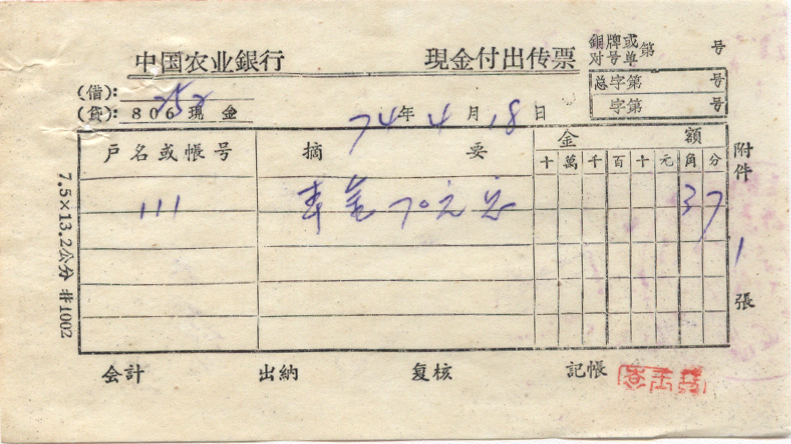 中国农业銀行 現金付出传票
銅牌或
对号单 第 号
总字第 号
字第 号
(借): 252
(貸): 806 現金
74年4月18日
户名或帳号 摘要 金額
十萬千百十元角分
111 70元 37
附件 1 張
7.5×13.2公分 #1002
会計 出納 复核 記帳